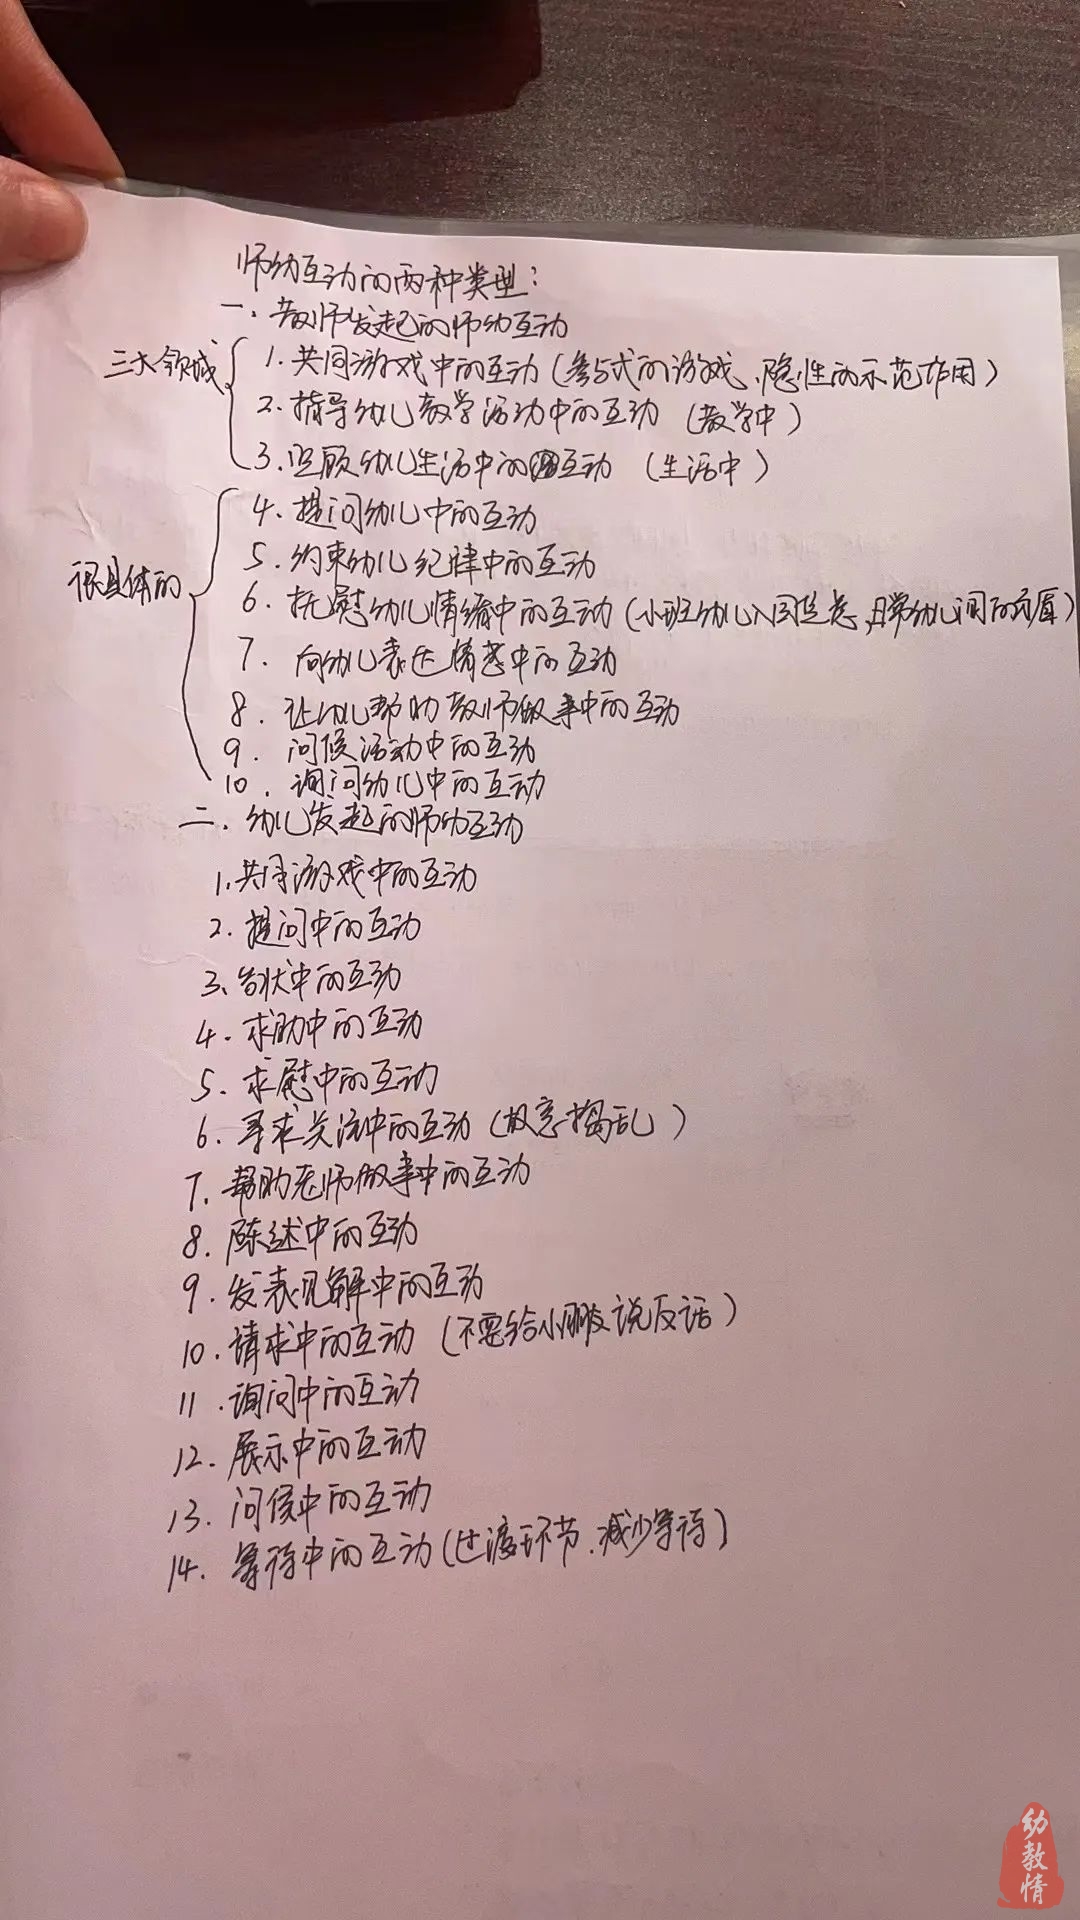 师幼互动的两种类型：
一、教师发起的师幼互动
三大领域
1. 共同游戏中的互动（参与式的游戏、隐性的示范作用）
2. 指导幼儿教学活动中的互动（教学中）
3. 照顾幼儿生活中的互动（生活中）
很具体的
4. 提问幼儿中的互动
5. 约束幼儿纪律中的互动
6. 抚慰幼儿情绪中的互动（小班幼儿入园焦虑，日常幼儿间的矛盾）
7. 向幼儿表达情感中的互动
8. 让幼儿帮助教师做事中的互动
9. 问候活动中的互动
10. 询问幼儿中的互动
二、幼儿发起的师幼互动
1. 共同游戏中的互动
2. 提问中的互动
3、告状中的互动
4. 求助中的互动
5. 求慰中的互动
6. 寻求关注中的互动（故意捣乱）
7. 帮助老师做事中的互动
8. 陈述中的互动
9. 发表见解中的互动
10. 请求中的互动（不要给小朋友说反话）
11. 询问中的互动
12. 展示中的互动
13. 问候中的互动
14. 等待中的互动（过渡环节、减少等待）
幼教情